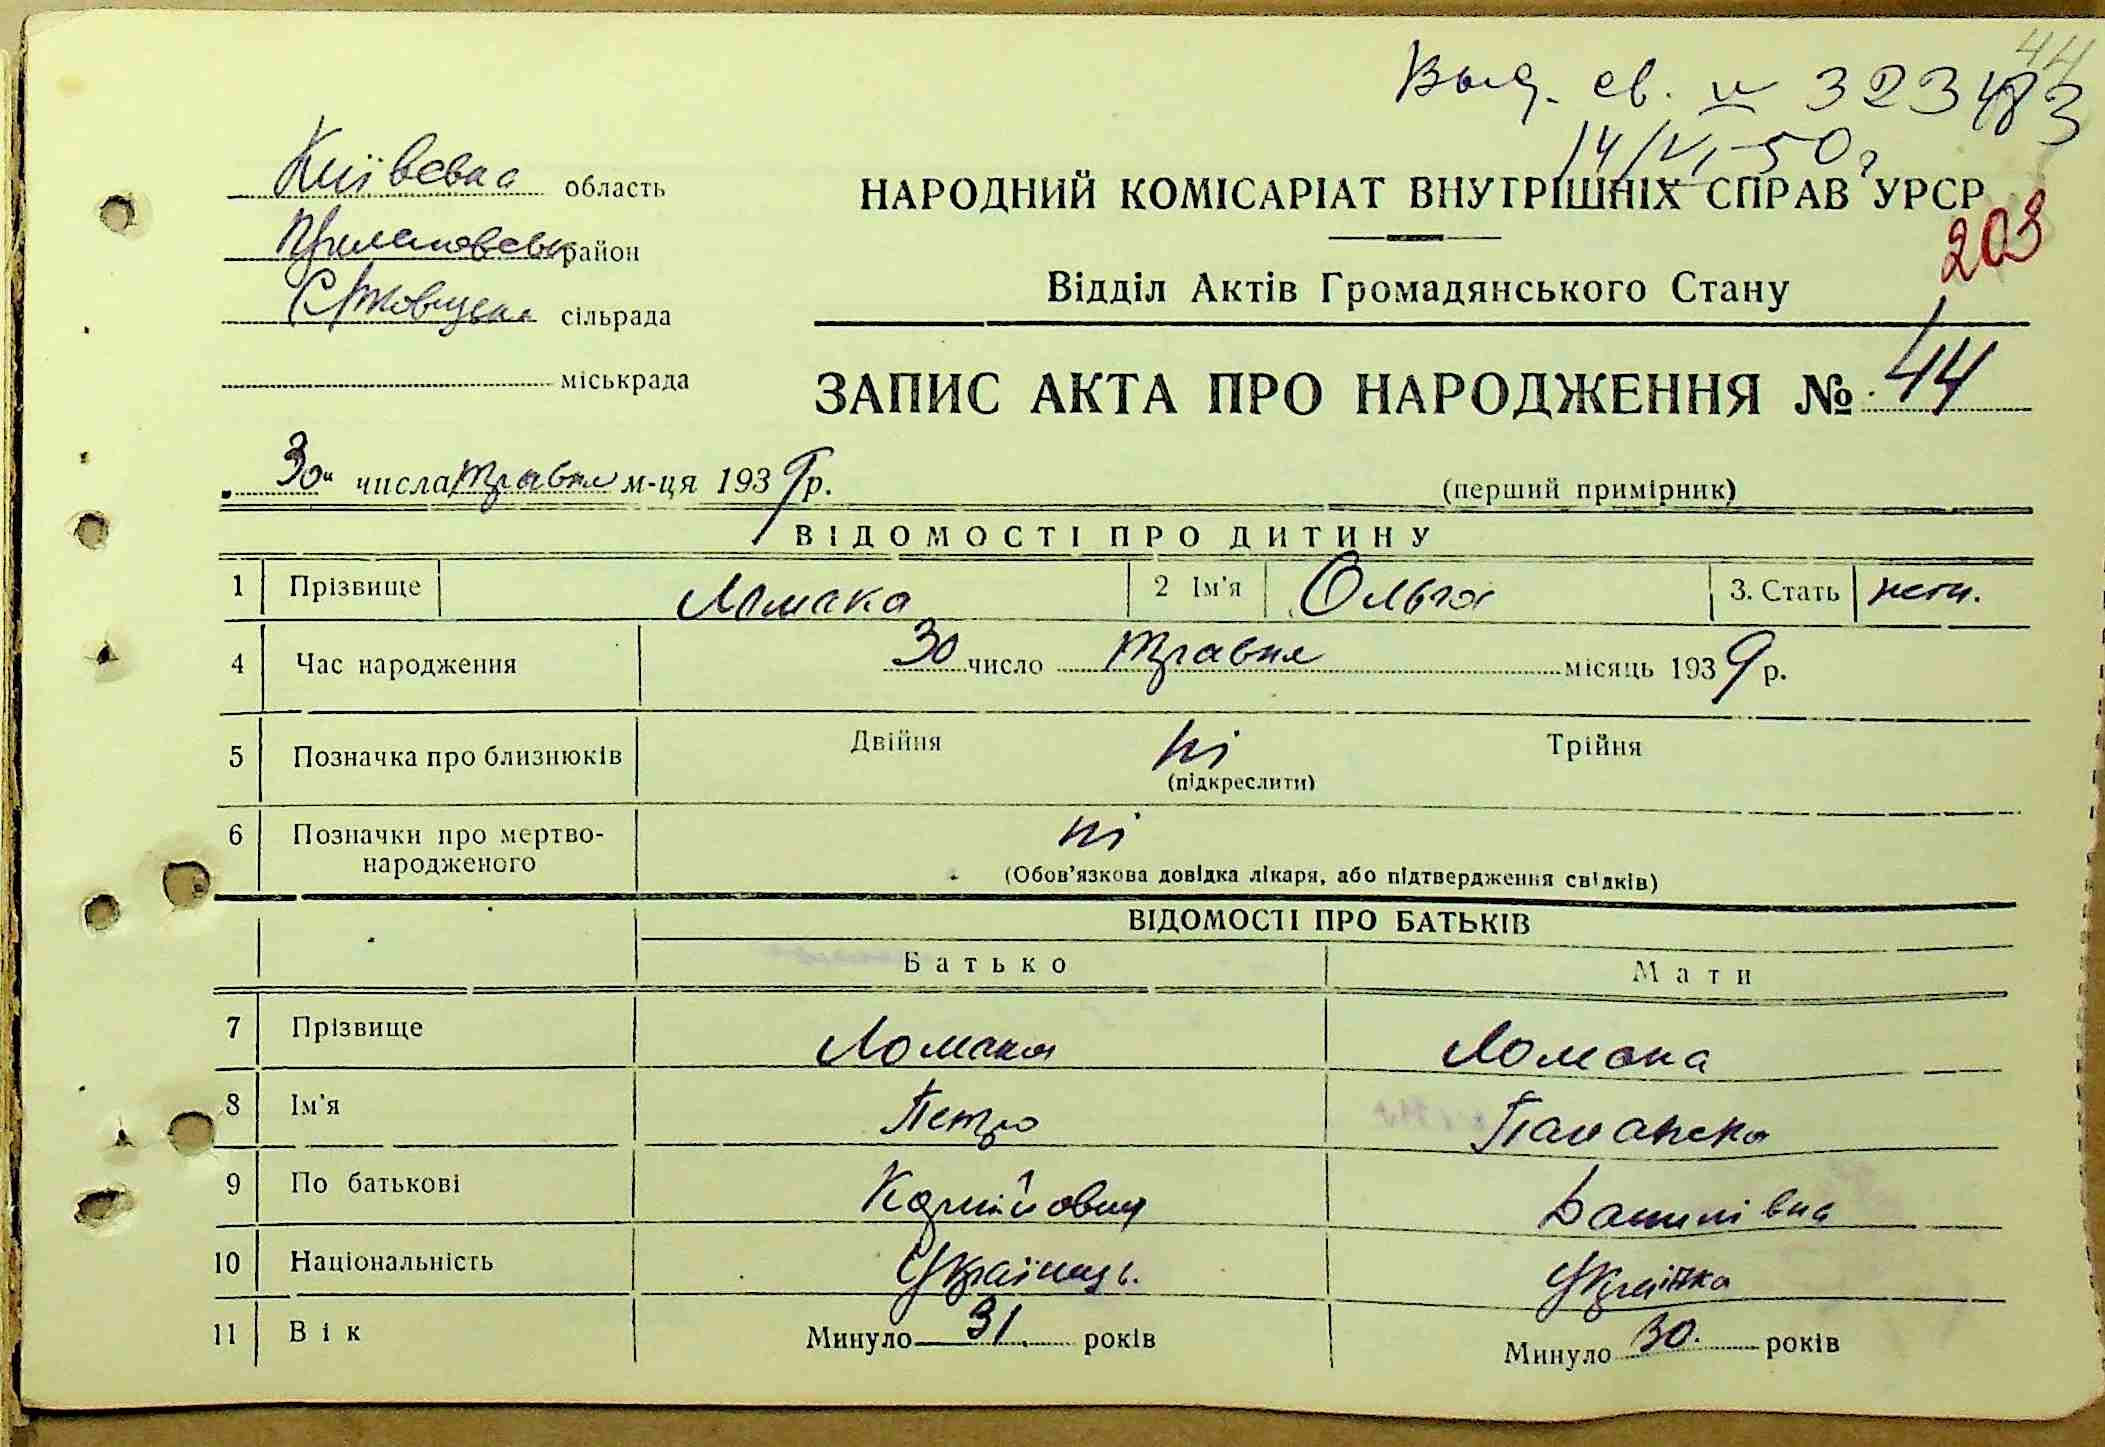 44
Выд. св. № 323483
14/VI-50 г
Київська область
район
сільрада
міськрада
НАРОДНИЙ КОМІСАРІАТ ВНУТРІШНІХ СПРАВ УРСР
203
Відділ Актів Громадянського Стану
ЗАПИС АКТА ПРО НАРОДЖЕННЯ № 44
„30“ числа травня м-ця 1939 р.
(перший примірник)
ВІДОМОСТІ ПРО ДИТИНУ
1 Прізвище Ломака 2 Ім'я Ольга 3. Стать жін.
4 Час народження 30 число травня місяць 1939 р.
5 Позначка про близнюків Двійня ні Трійня
(підкреслити)
6 Позначки про мертво-
народженого ні
(Обов'язкова довідка лікаря, або підтвердження свідків)
ВІДОМОСТІ ПРО БАТЬКІВ
Батько Мати
7 Прізвище Ломака Ломака
8 Ім'я Петро Палажка
9 По батькові Корнійович Данилівна
10 Національність Українець. Українка
11 Вік Минуло 31 років Минуло 30. років